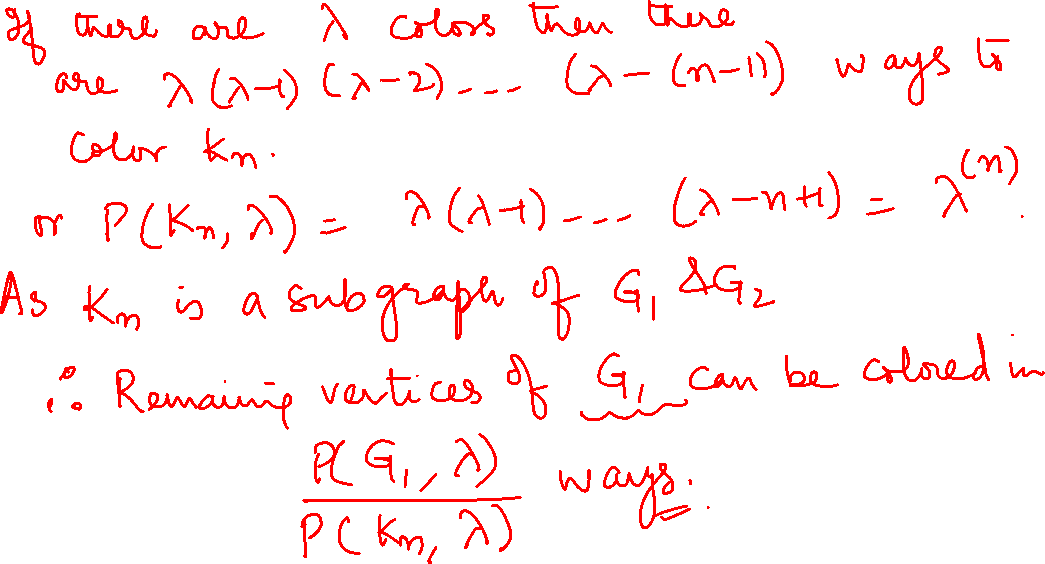 If there are λ colors then there
are λ(λ-1)(λ-2)--- (λ-(n-1)) ways to
color Kn.
or P(Kn, λ) = λ(λ-1)--- (λ-n+1) = λ^(n).
As Kn is a subgraph of G₁ & G₂
∴ Remaining vertices of G₁ can be colored in
P(G₁, λ)
/ P(Kn, λ) ways.